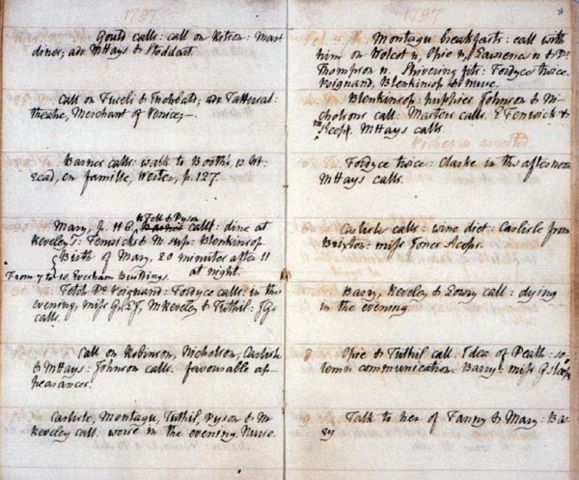 1797
Gould calls: call on : 
diner; adv MHays & Stoddart.
Call on Fuseli & Inchbald; adv Tattersal:
theatre, Merchant of Venice;
Barnes calls: walk to Booth's, 
read, en famille, Werter, p. 127.
Mary, p. 116. Fell & Dyson call: dine at
Reveley's: Fenwicks & M. sup: Blenkinsop.
Birth of Mary, 20 minutes after 11
at night.
From 7 to 10, Evesham Buildings.
Fetch Dr Poignand: Fordyce calls: in the
evening, miss G & LJ, M Reveley & Tuthil: 
calls.
Call on Robinson, Nicholson, Carlisle
& MHays: Johnson calls. favourable ap
pearances.
Carlisle, Montagu, Tuthil, Dyson & M
Reveley call. worse in the evening. Nurse.
1797
Montagu breakfasts: call with
him on Wolcot n, Opie n, Lawrence n & Dr
Thompson n. Shivering fits: Fordyce twice.
Poignand, Blenkinsop & nurse.
Blenkinsop: puppies: Johnson & Ni
cholson call: Masters calls. E Fenwick &
 sleep. MHays calls.
Pichegru arrested
Fordyce twice: Clarke in the afternoon
MHays calls.
Carlisle calls: wine diet: Carlisle from
Brixton: miss Jones sleeps.
Barry, Reveley & Lowry call: dying
in the evening
Opie & Tuthil call. Idea of Death: so-
lemn communication. Barry: miss G sleeps
Talk to her of Fanny & Mary: Bar
ry